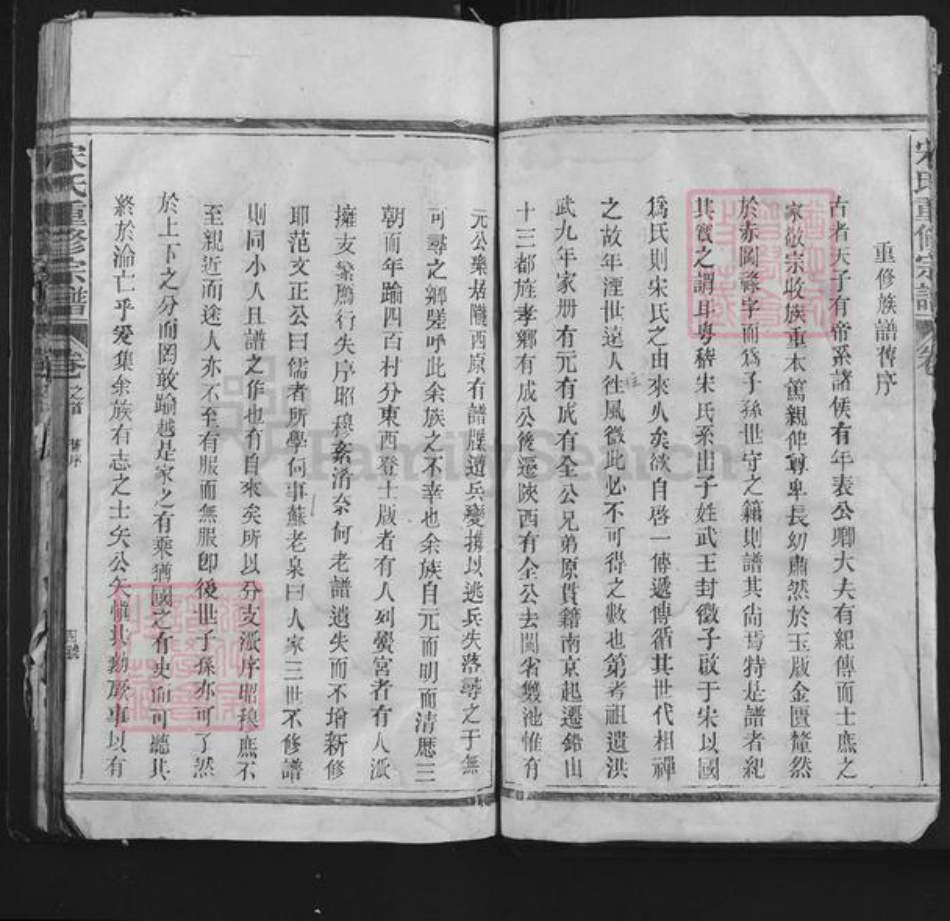 宋氏重修宗譜
重修族譜舊序
古者天子有帝系諸侯有年表公卿大夫有紀傳而士庶之
家敬宗收族重本篤親俾尊卑長幼肅然於玉版金匱釐然
於赤闕綠字而為子孫世守之籍則譜其尚焉特是譜者紀
其實之謂耳粵稽宋氏系出子姓武王封微子啟于宋以國
為氏則宋氏之由來久矣欲自啓一傳遞傳循其世代相禪
之故年湮世遠人往風微此必不可得之數也第考祖遺洪
武九年家册有元有成有全公兄弟原貫籍南京起遷鉛山
十三都旌孝鄉有成公後遷陝西有全公去閩省 池惟有
元公樂居隴西原有譜牒遭兵變携以逃兵失落尋之于無
可尋之鄉嗟呼此余族之不幸也余族自元而明而清歷三
朝而年踰四百村分東西登士版者有人列黌宮者有人派
擁支繁鴈行失序昭穆紊淆奈何老譜遺失而不增新修
耶范文正公曰儒者所學何事蘇老泉曰人家三世不修譜
則同小人且譜之作也有自來矣所以分支派序昭穆庶不
至親近而途人亦不至有服而無服卽後世子孫亦可了然
於上下之分而罔敢踰越是家之有乘猶國之有史而可聽其
終於淪亡乎爰集余族有志之士矢公矢慎共勷厥事以有
宋氏重修宗譜
卷 之首
舊序
FamilySearch